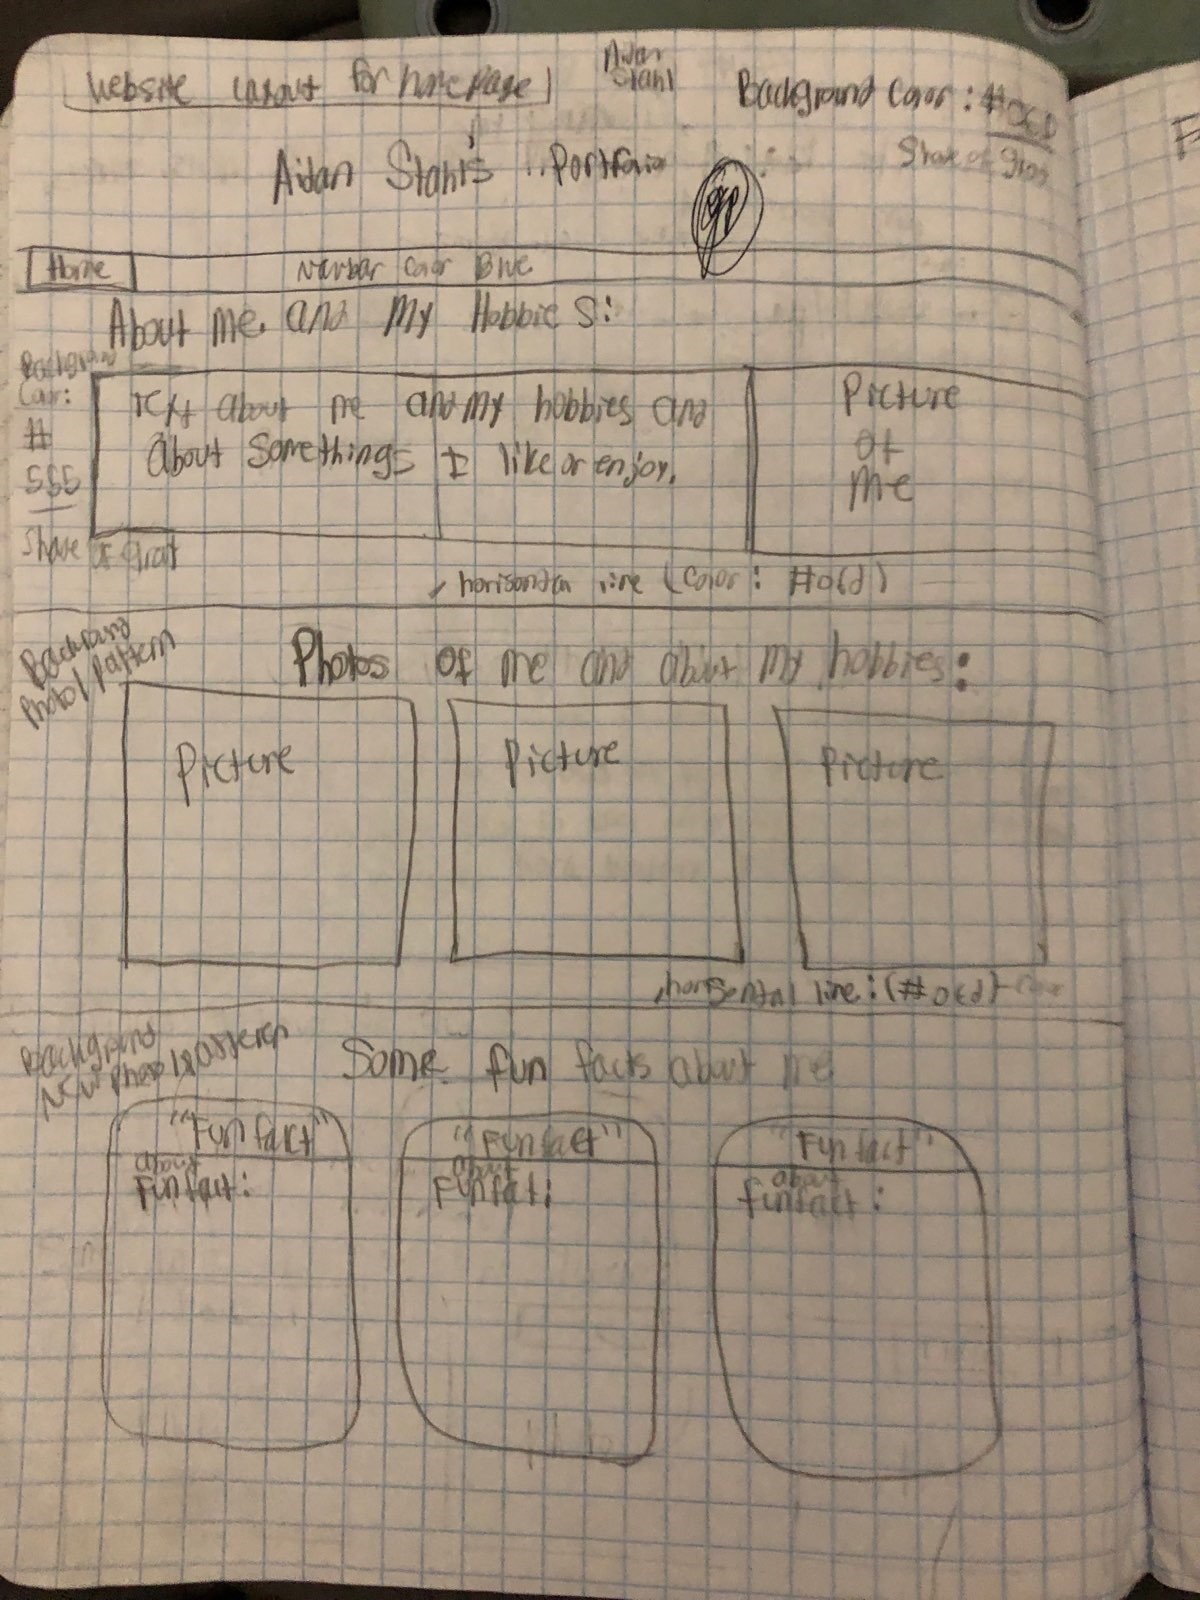 Website Layout for home Page
Aidan
Stahl
Background Color: #
Aidan Stahl's Portfolio
Home
Navbar Color Blue
About me. and my Hobbies:
Background
Color:
#
555
Text about me and my hobbies and
about somethings I like or enjoy.
Picture
of
me
horisontal line (color: #0cd)
Background
Photo/Pattern
Photos of me and about my hobbies:
Picture
Picture
Picture
horisental line: (#0cd)
Background
New Photo/patteren
Some fun facts about me
"Fun fact"
about
Fun fact:
"Fun fact"
about
Fun fact:
"Fun fact"
about
fun fact: